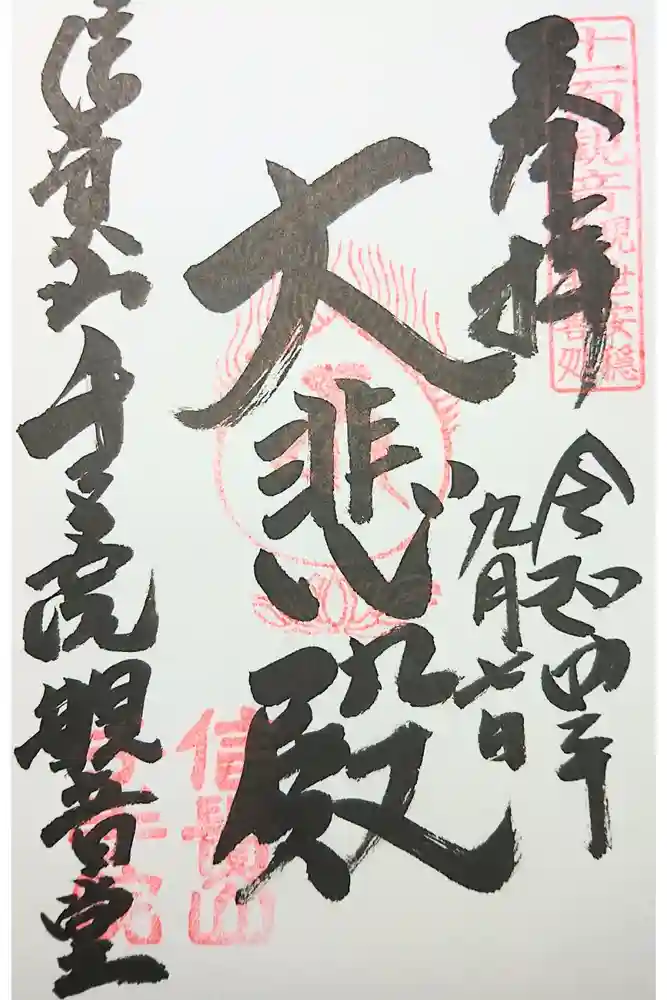 奉拝
十一面観音
現世安穏
令和四年
九月七日
大悲殿
信貴山
信貴山千手院観音堂